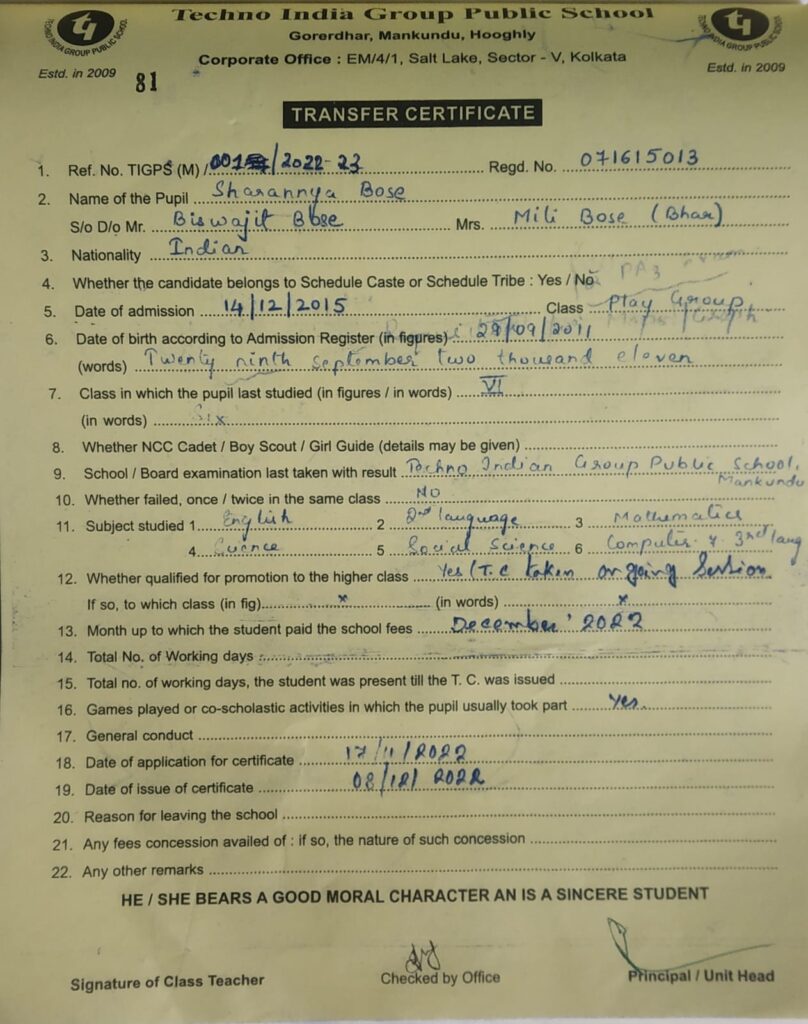 Techno India Group Public School
Gorerdhar, Mankundu, Hooghly
Corporate Office : EM/4/1, Salt Lake, Sector - V, Kolkata
TECHNO INDIA GROUP PUBLIC SCHOOL
Estd. in 2009
81
TECHNO INDIA GROUP PUBLIC SCHOOL
Estd. in 2009
TRANSFER CERTIFICATE
1. Ref. No. TIGPS (M) / /2022-23 Regd. No. 071615013
2. Name of the Pupil Sharannya Bose
S/o D/o Mr. Biswajit Bose Mrs. Mili Bose (Bhar)
3. Nationality Indian
4. Whether the candidate belongs to Schedule Caste or Schedule Tribe : Yes / No
5. Date of admission 14/12/2015 Class Play Group
6. Date of birth according to Admission Register (in figures) 29/09/2011
(words) Twenty ninth September two thousand eleven
7. Class in which the pupil last studied (in figures / in words) VI
(in words) Six
8. Whether NCC Cadet / Boy Scout / Girl Guide (details may be given)
9. School / Board examination last taken with result Techno Indian Group Public School,
Mankundu
10. Whether failed, once / twice in the same class NO
11. Subject studied 1. English 2 2nd language 3 Mathematics
4. Science 5 Social Science 6 Computer & 3rd lang
12. Whether qualified for promotion to the higher class Yes/T.C taken on going Session
If so, to which class (in fig) x (in words) x
13. Month up to which the student paid the school fees December' 2022
14. Total No. of Working days :
15. Total no. of working days, the student was present till the T. C. was issued
16. Games played or co-scholastic activities in which the pupil usually took part Yes.
17. General conduct
18. Date of application for certificate 17/11/2022
19. Date of issue of certificate 08/12/2022
20. Reason for leaving the school
21. Any fees concession availed of : if so, the nature of such concession
22. Any other remarks
HE / SHE BEARS A GOOD MORAL CHARACTER AN IS A SINCERE STUDENT
Signature of Class Teacher Checked by Office Principal / Unit Head